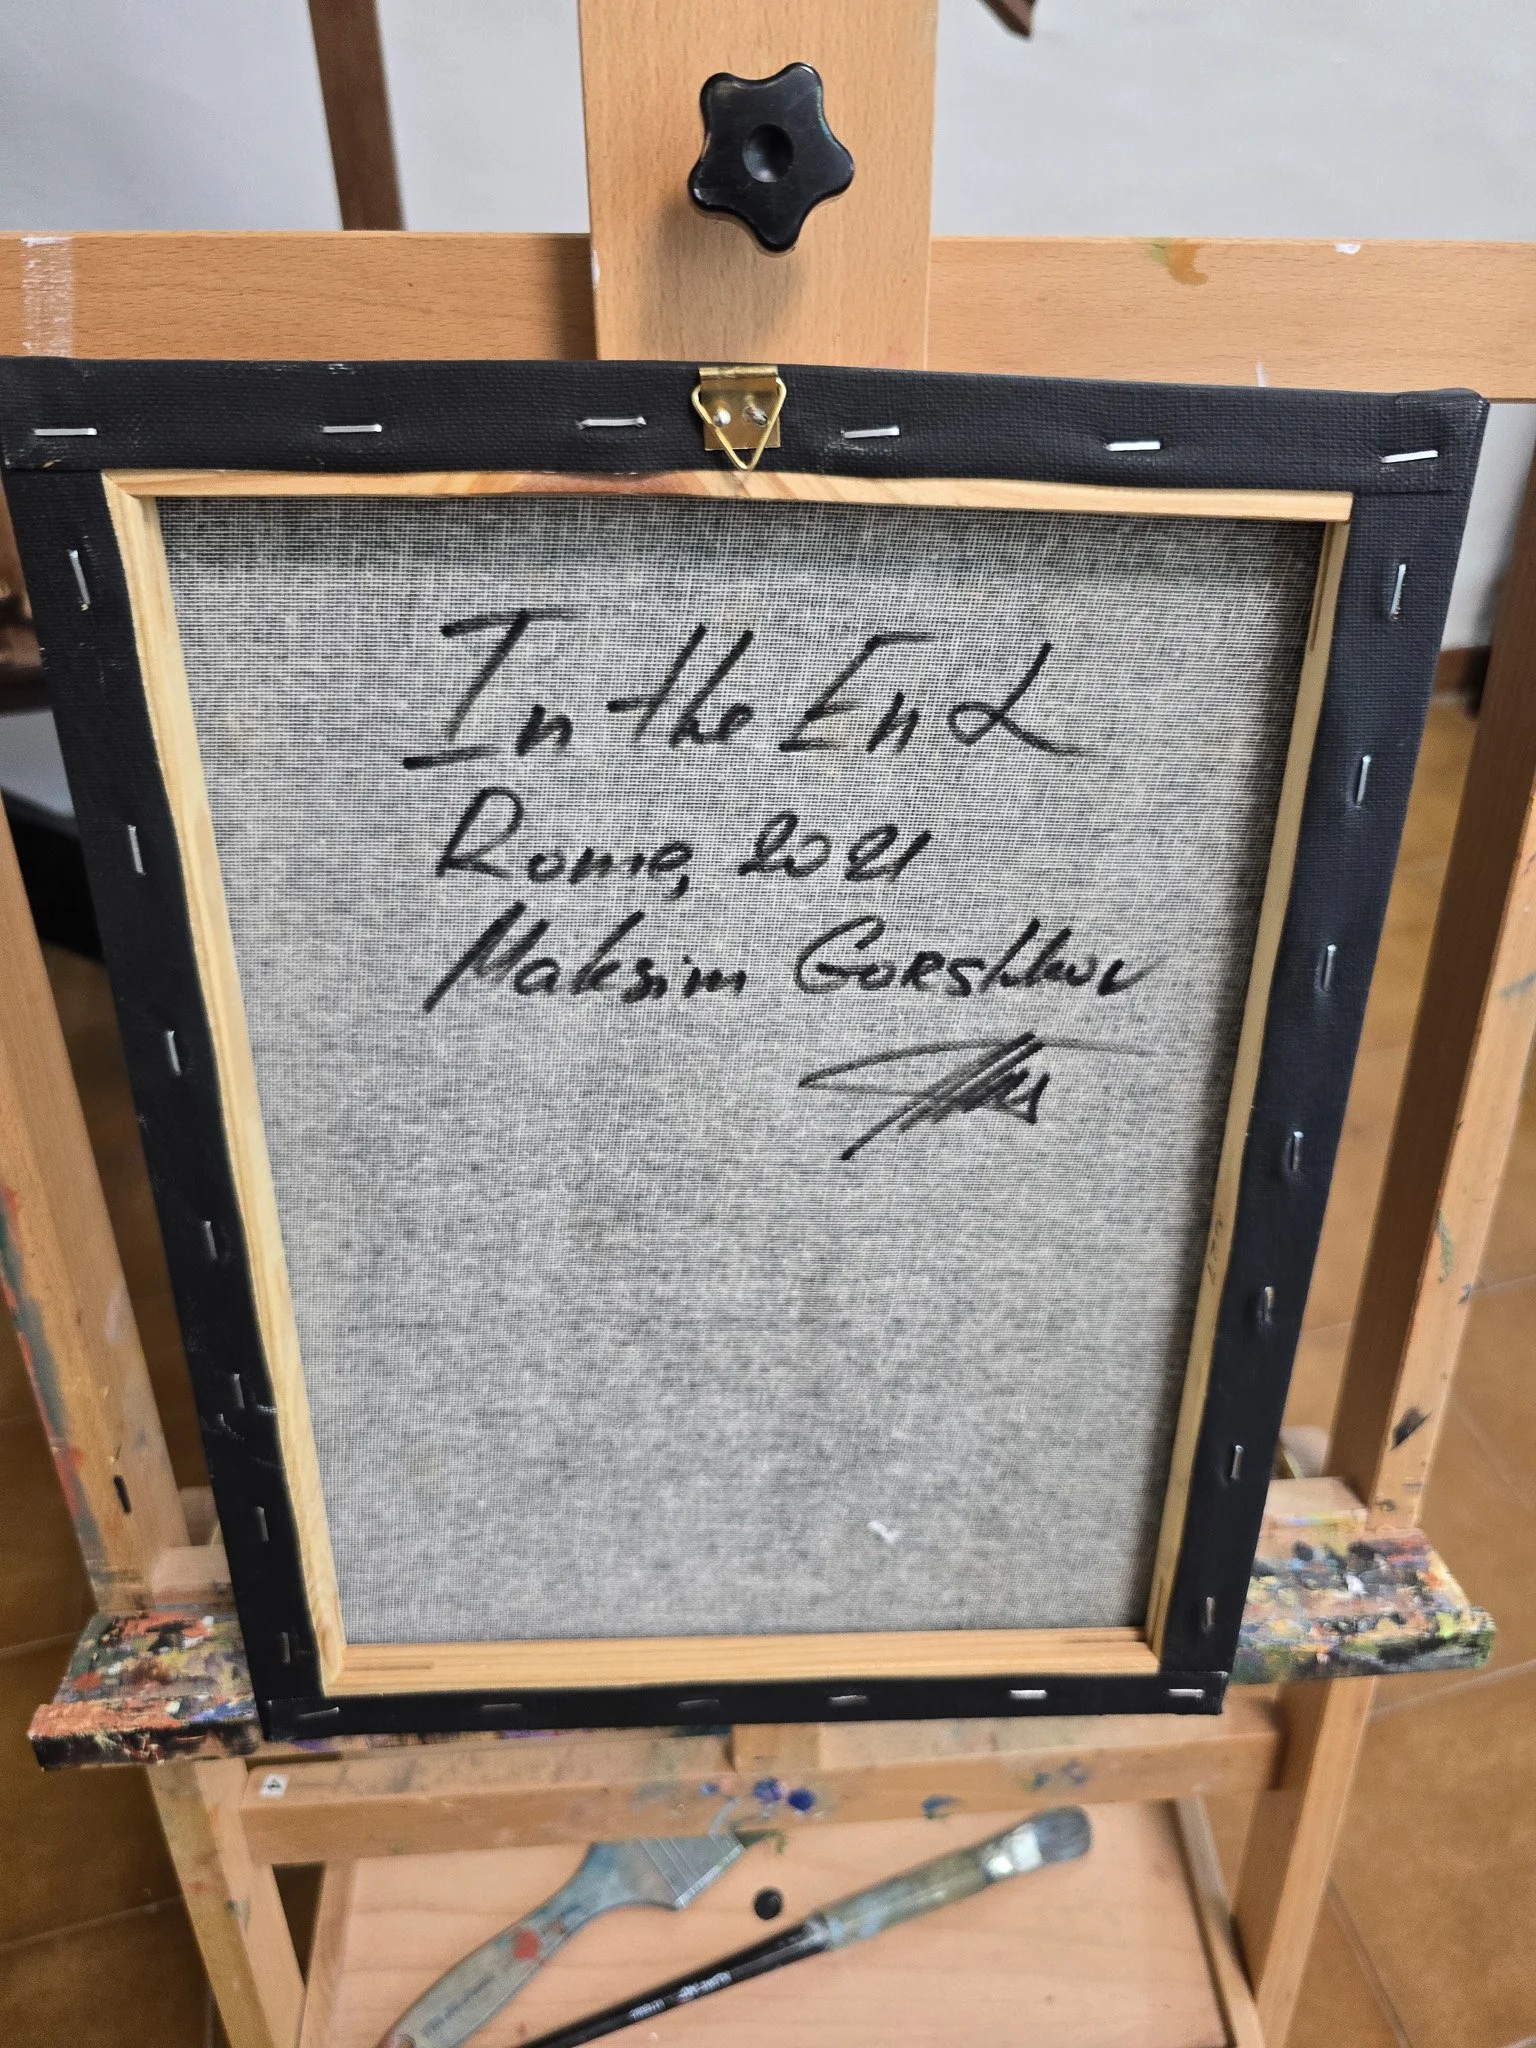 In the End
Rome, 2021
Maksim Gorshkov
4